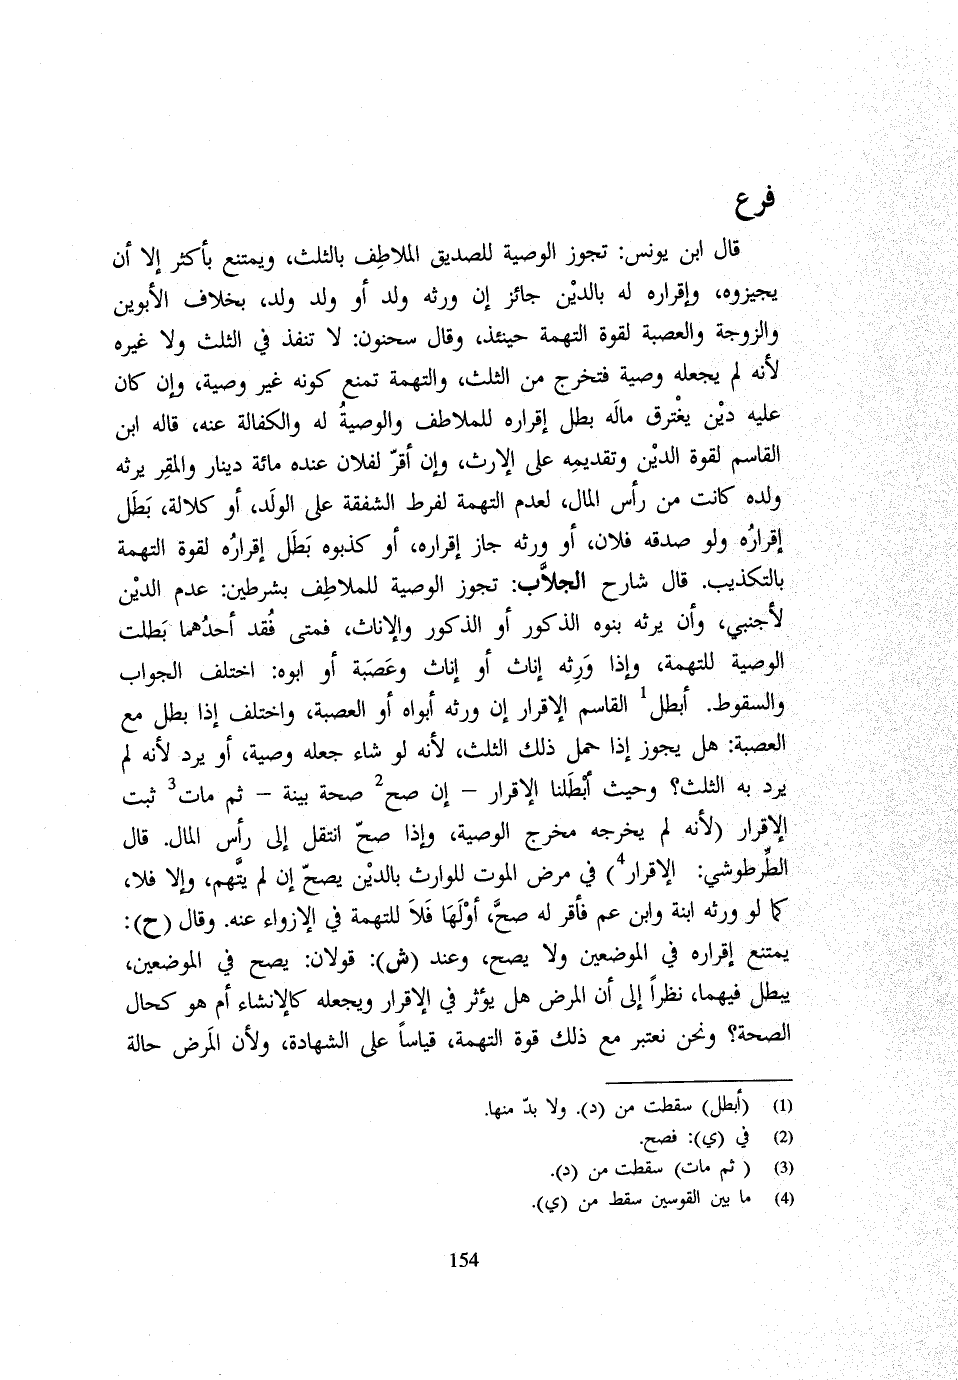 فرع
قال ابن يونس: تجوز الوصية للصديق الملاطِف بالثلث، ويمتنع بأكثر إلا أن
يجيزوه، وإقراره له بالديْن جائز إن ورثه ولد أو ولد ولد، بخلاف الأبوين
والزوجة والعصبة لقوة التهمة حينئذ، وقال سحنون: لا تنفذ في الثلث ولا غيره
لأنه لم يجعله وصية فتخرج من الثلث، والتهمة تمنع كونه غير وصية، وإن كان
عليه ديْن يغْترق مالَه بطل إقراره للملاطف والوصيةُ له والكفالة عنه، قاله ابن
القاسم لقوة الديْن وتقديمِه على الإرث، وإن أقرّ لفلان عنده مائة دينار والمقِر يرثه
ولده كانت من رأس المال، لعدم التهمة لفرط الشفقة على الولَد، أو كلالة، بَطَل
إقرارُه ولو صدقه فلان، أو ورثه جاز إقراره، أو كذبوه بَطَل إقرارُه لقوة التهمة
بالتكذيب. قال شارح الجلاَّب: تجوز الوصية للملاطِف بشرطين: عدم الديْن
لأجنبي، وأن يرثه بنوه الذكور أو الذكور والإناث، فمتى فُقد أحدُهما بَطلت
الوصية للتهمة، وإذا وَرِثه إناث أو إناث وعَصَبة أو ابوه: اختلف الجواب
والسقوط. أبطل1 القاسم الإقرار إن ورثه أبواه أو العصبة، واختلف إذا بطل مع
العصبة: هل يجوز إذا حمل ذلك الثلث، لأنه لو شاء جعله وصية، أو يرد لأنه لم
يرد به الثلث؟ وحيث أبْطَلنا الإقرار – إن صح2 صحة بينة – ثم مات3 ثبت
الإقرار (لأنه لم يخرجه مخرج الوصية، وإذا صحّ انتقل إلى رأس المال. قال
الطِّرطوشي: الإقرار4) في مرض الموت للوارث بالديْن يصحّ إن لم يتَّهم، وإلا فلا،
كما لو ورثه ابنة وابن عم فأقر له صحَّ، أوْلَهَا فَلاَ للتهمة في الإزواء عنه. وقال (ح):
يمتنع إقراره في الموضعين ولا يصح، وعند (ش): قولان: يصح في الموضعين،
يبطل فيهما، نظراً إلى أن المرض هل يؤثر في الإقرار ويجعله كالإنشاء أم هو كحال
الصحة؟ ونحن نعتبر مع ذلك قوة التهمة، قياساً على الشهادة، ولأن المَرض حالة
(1) (أبطل) سقطت من (د). ولا بدّ منها.
(2) في (ي): فصح.
(3) ( ثم مات) سقطت من (د).
(4) ما بين القوسين سقط من (ي).
154